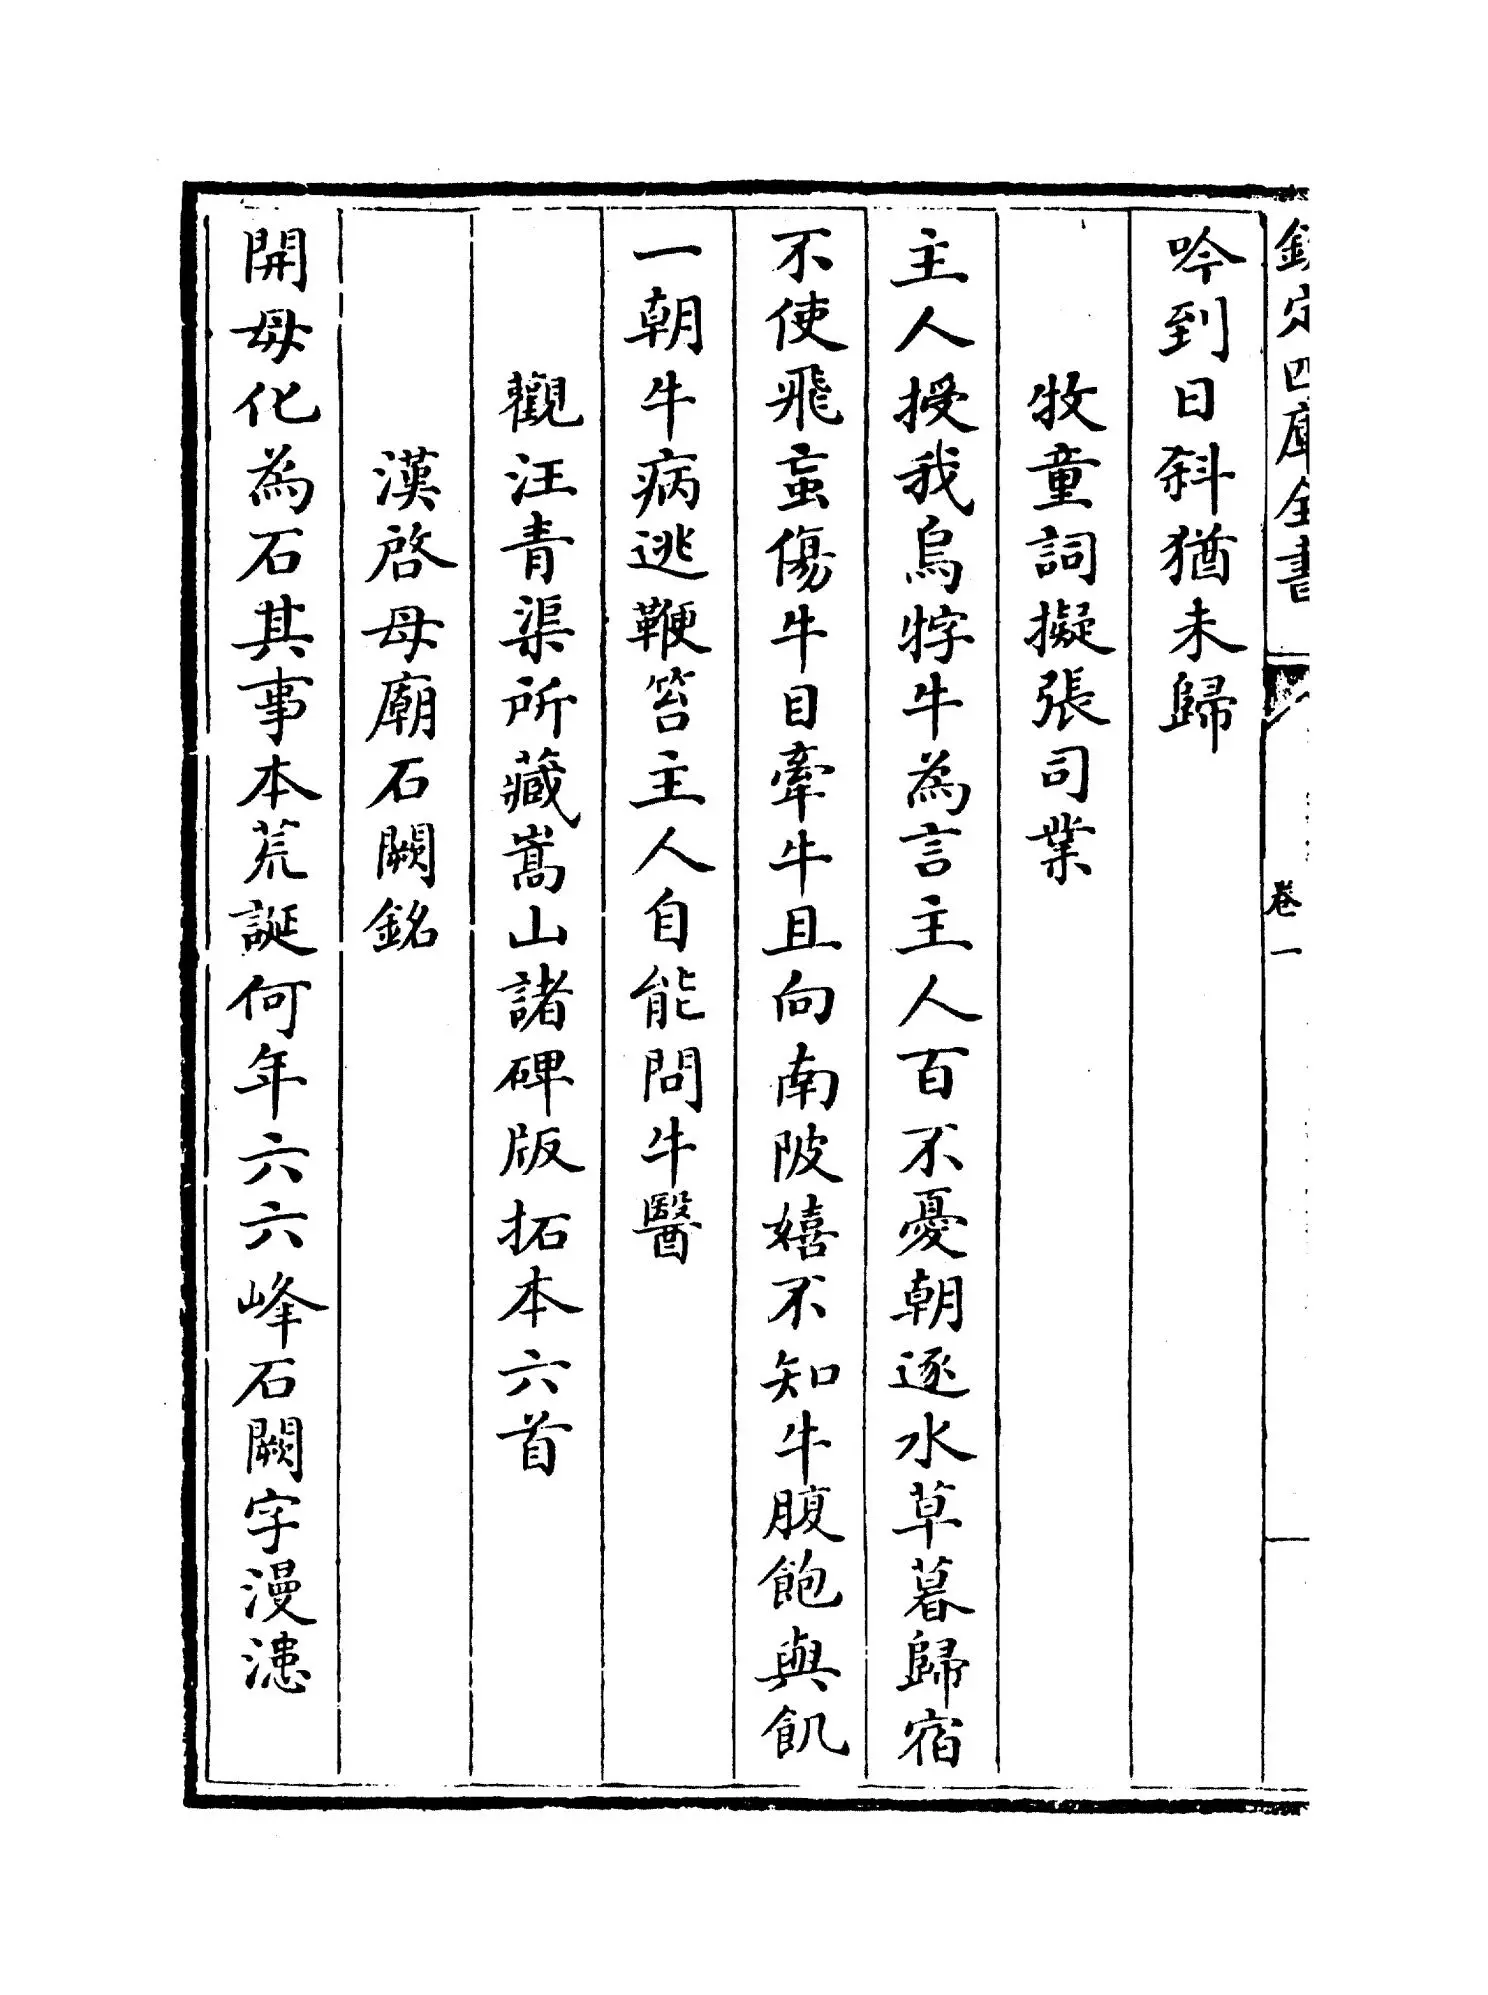 欽定四庫全書
卷一
吟到日斜猶未歸
牧童詞擬張司業
主人授我烏牸牛為言主人百不憂朝逐水草暮歸宿
不使飛䖟傷牛目牽牛且向南陂嬉不知牛腹飽與飢
一朝牛病逃鞭笞主人自能問牛醫
觀汪青渠所藏嵩山諸碑版拓本六首
漢啓母廟石闕銘
開母化為石其事本荒誕何年六六峰石闕字漫漶